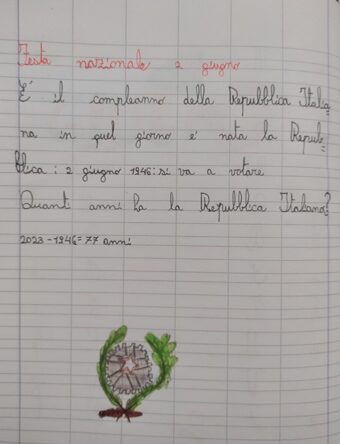 Festa nazionale 2 giugno
E' il compleanno della Repubblica Italia
na in quel giorno e' nata la Repub=
blica: 2 giugno 1946: si va a votare
Quanti anni ha la Repubblica Italiana?
2023-1946=77 anni